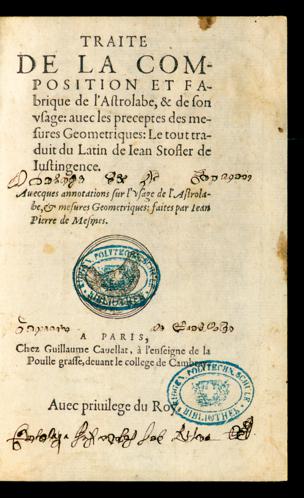 TRAITE
DE LA COM-
POSITION ET FA-
brique de l'Astrolabe, & de son
vsage: auec les preceptes des me-
sures Geometriques: Le tout tra-
duit du Latin de Iean Stofler de
Iustingence.
Auecques annotations sur l'vsage de l'Astrola-
be, & mesures Geometriques: faites par Iean
Pierre de Mesmes.
POLYTECHN. SCHULE
BIBLIOTHEK
A PARIS,
Chez Guillaume Cauellat, à l'enseigne de la
Poulle grasse, deuant le college de Cambray.
POLYTECHN. SCHULE
BIBLIOTHEK
Auec priuilege du Roy